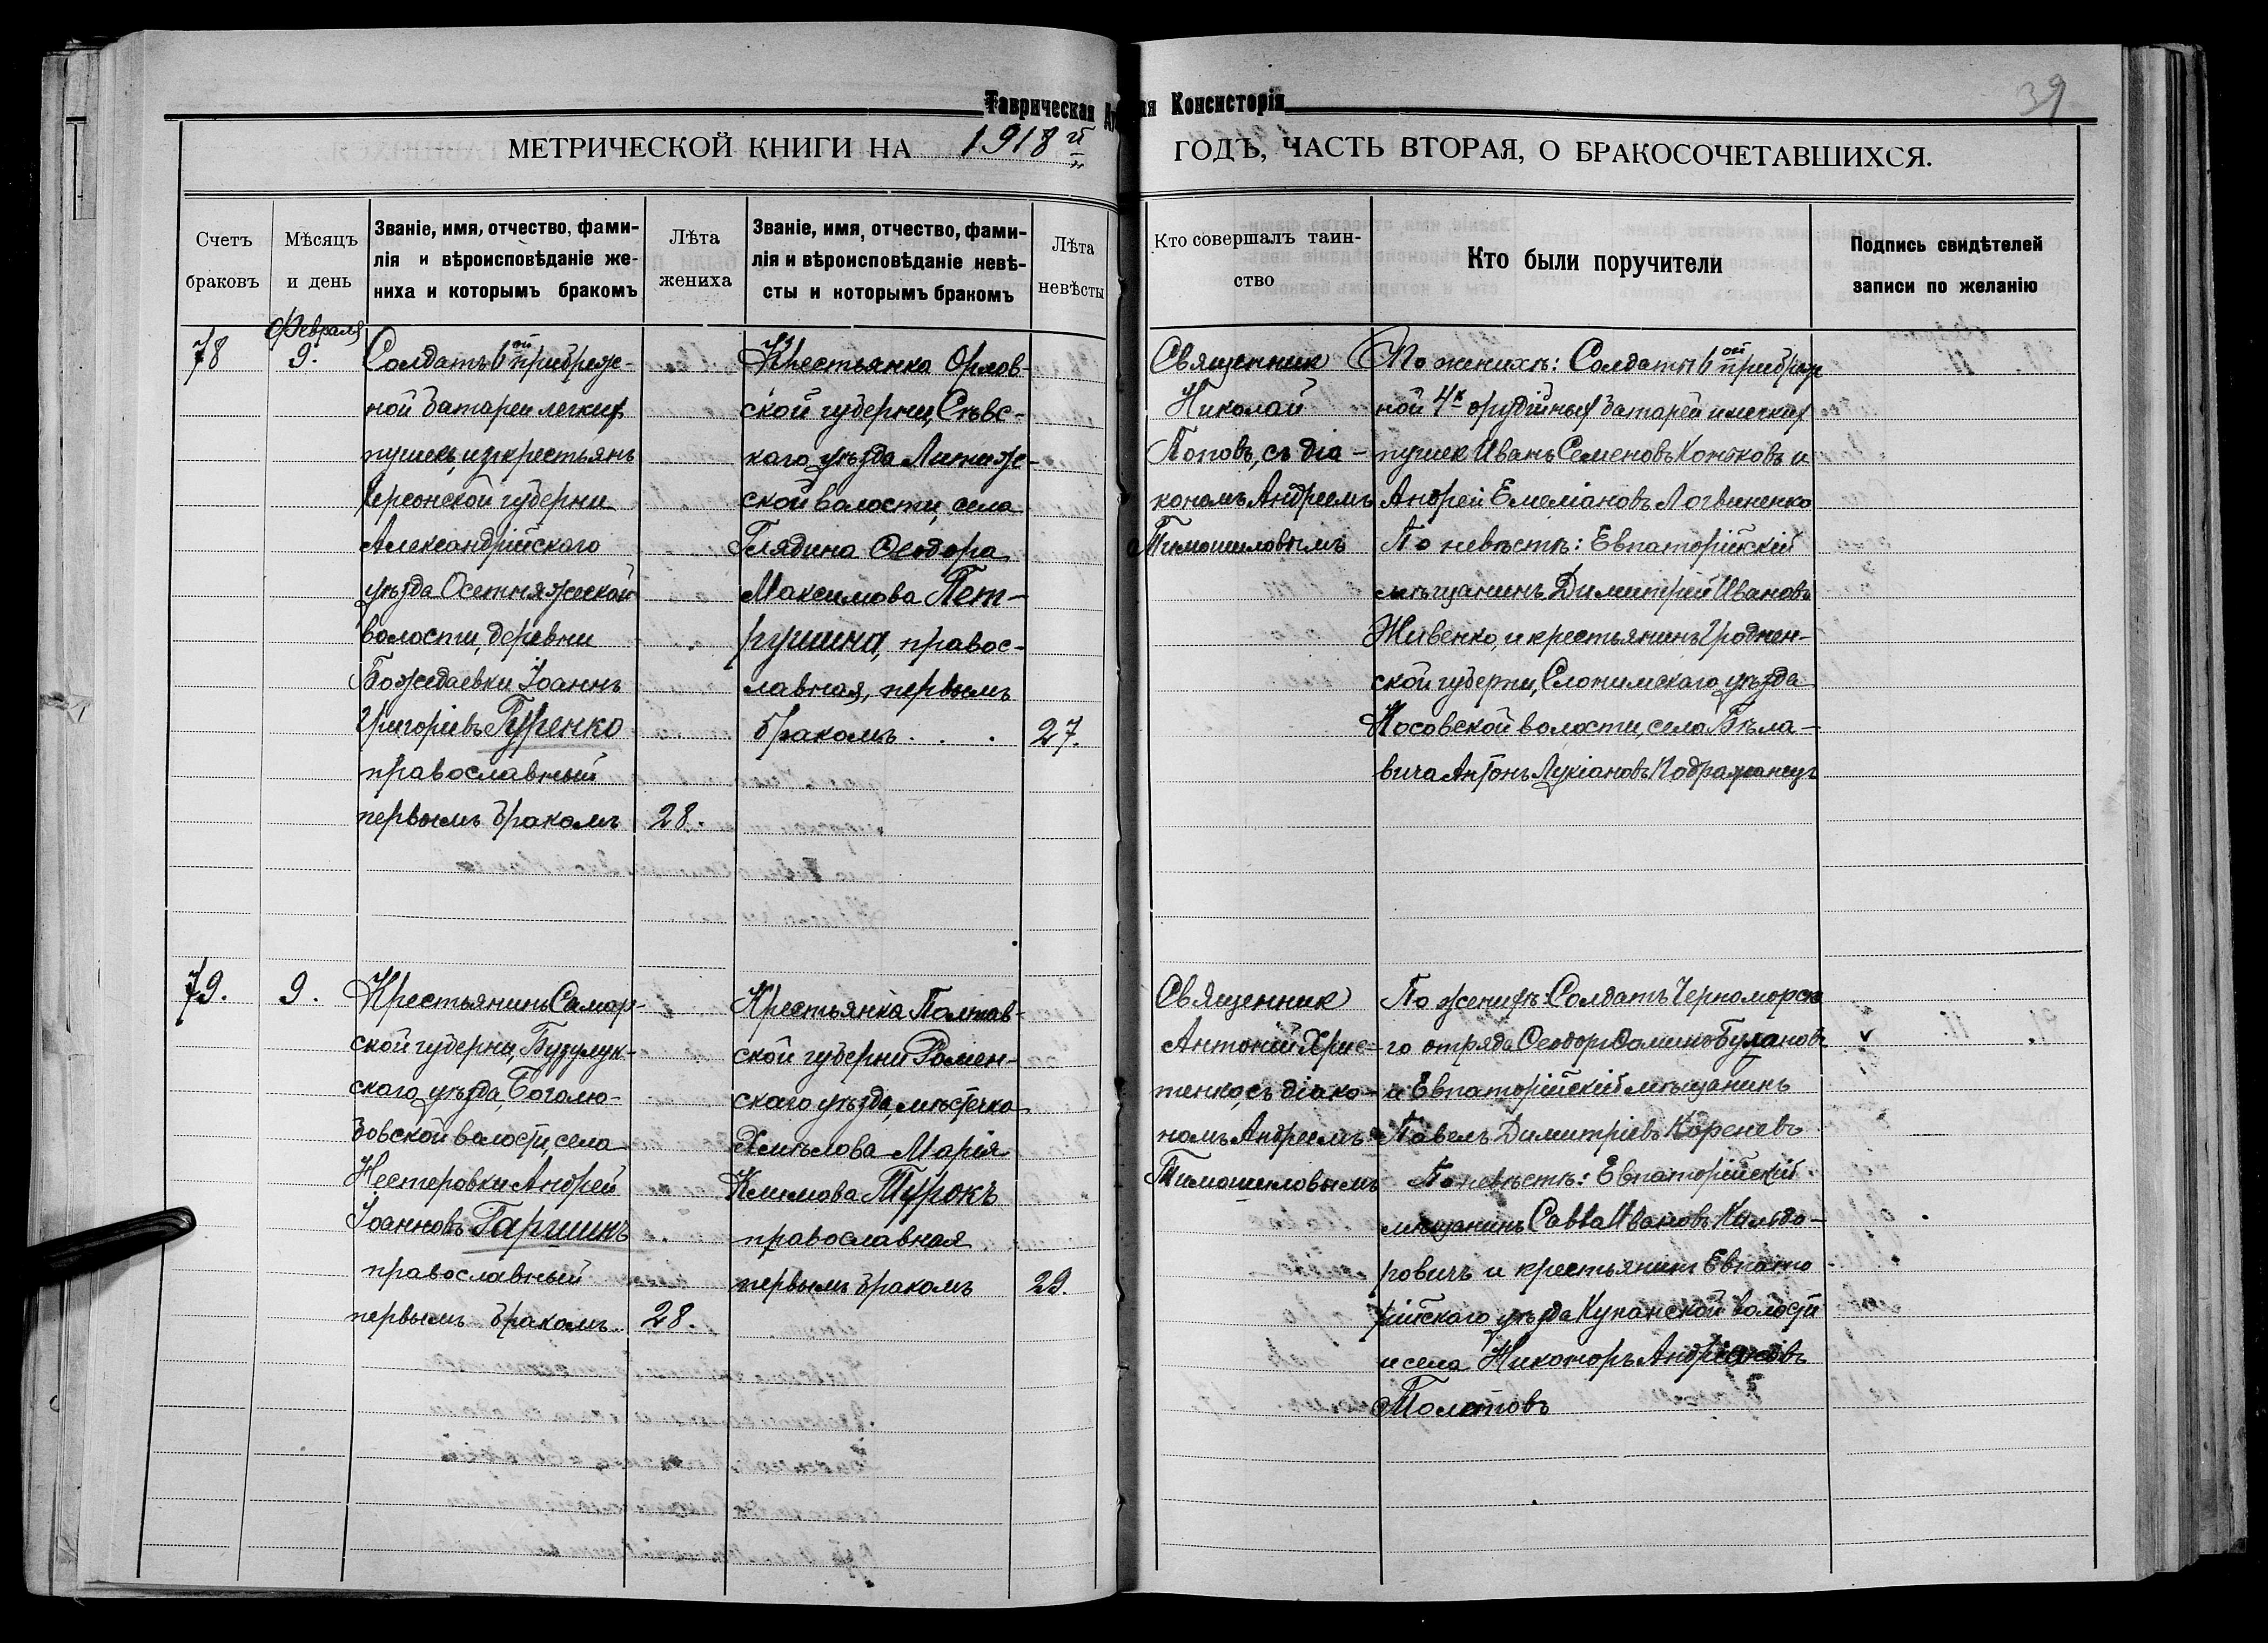 39
Таврическая
ая Консисторія
МЕТРИЧЕСКОЙ КНИГИ НА 1918 й
ГОДЪ, ЧАСТЬ ВТОРАЯ, О БРАКОСОЧЕТАВШИХСЯ.
Счетъ
браковъ
Мѣсяцъ
и день
Званіе, имя, отчество, фами-
лія и вѣроисповѣданіе же-
ниха и которымъ бракомъ
Лѣта
жениха
Званіе, имя, отчество, фами-
лія и вѣроисповѣданіе невѣ-
сты и которымъ бракомъ
Лѣта
невѣсты
Кто совершалъ таин-
ство
Кто были поручители
Подпись свидѣтелей
записи по желанію
78
Февраля
9.
Солдатъ 6ой прибреж-
ной батареи легких
пушекъ, изъ крестьянъ
Херсонской губерни
Александрійскаго
уѣзда Осетняжской
волости, деревни
Бождаевки Іоаннъ
Григоріевъ Гуренко
православный
первымъ бракомъ
28.
Крестьянка Орлов-
ской губерни, Сѣвс-
каго уѣзда Литиж-
ской волости, села
Глядина Ѳеодора
Максимова Пет-
рушина, правос-
лавная, первымъ
бракомъ . . .
27.
Священник
Николай
Поповъ, съ діа-
кономъ Андреемъ
Тимошиловымъ
По женихѣ: Солдаты 6ой прибреж
ной 4х орудійных батарей и легких
пушек Иванъ Семеновъ Котковъ и
Андрей Емеліановъ Логвиненко
По невѣстѣ: Евпаторійскій
мѣщанинъ Димитрій Ивановъ
Живенко, и крестьянинъ Гроднен-
ской губерни, Слонимскаго уѣзда
Косовской волости, села Бѣла-
вича Антонъ Лукіановъ Подражанецъ
79.
9.
Крестьянинъ Самар-
ской губерни, Бузулук-
скаго уѣзда, Боголю-
бовской волости, села
Нестеровки Андрей
Іоанновъ Гаршинъ
православный
первымъ бракомъ
28.
Крестьянка Полтав-
ской губерни Ромен-
скаго уѣзда, мѣстечка
Хмѣлова Марія
Климова Турокъ
православная
первымъ бракомъ
29.
Священник
Антоній Хрис-
тенко, съ діако-
номъ Андреемъ
Тимошиловымъ
По женихѣ: Солдатъ Черноморска
го отряда Ѳеодоръ Ѳоминъ Булановъ
и Евпаторійскій мѣщанинъ
Павелъ Димитріевъ Кореневъ
По невѣстѣ: Евпаторійскій
мѣщанинъ Савва Ивановъ Кильдо-
ровичъ и крестьянинъ Евпато-
рійскаго уѣзда Кунанской волости
и села Никоноръ Андріановъ
Толстовъ